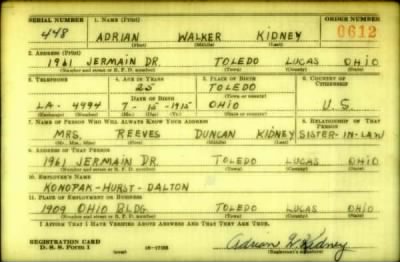 SERIAL NUMBER 1. NAME (Print) ORDER NUMBER
448 ADRIAN WALKER KIDNEY 0612
(First) (Middle) (Last)
2. ADDRESS (Print)
1961 JERMAIN DR. TOLEDO LUCAS OHIO
(Number and street or R. F. D. number) (Town) (County) (State)
3. TELEPHONE 4. AGE IN YEARS 5. PLACE OF BIRTH 6. COUNTRY OF CITIZENSHIP
25 TOLEDO
DATE OF BIRTH (Town or county)
LA- 4494 7-15-1915 OHIO U.S.
(Exchange) (Number) (Mo.) (Day) (Yr.) (State or country)
7. NAME OF PERSON WHO WILL ALWAYS KNOW YOUR ADDRESS 8. RELATIONSHIP OF THAT PERSON
MRS. REEVES DUNCAN KIDNEY SISTER-IN-LAW
(Mr., Mrs., Miss) (First) (Middle) (Last)
9. ADDRESS OF THAT PERSON
1961 JERMAIN DR. TOLEDO LUCAS OHIO
(Number and street or R. F. D. number) (Town) (County) (State)
10. EMPLOYER'S NAME
KONOPAK-HURST-DALTON
11. PLACE OF EMPLOYMENT OR BUSINESS
1909 OHIO BLDG. TOLEDO LUCAS OHIO
(Number and street or R. F. D. number) (Town) (County) (State)
I AFFIRM THAT I HAVE VERIFIED ABOVE ANSWERS AND THAT THEY ARE TRUE.
REGISTRATION CARD
D. S. S. Form 1 16-17105 Adrian W. Kidney
(Registrant's signature)